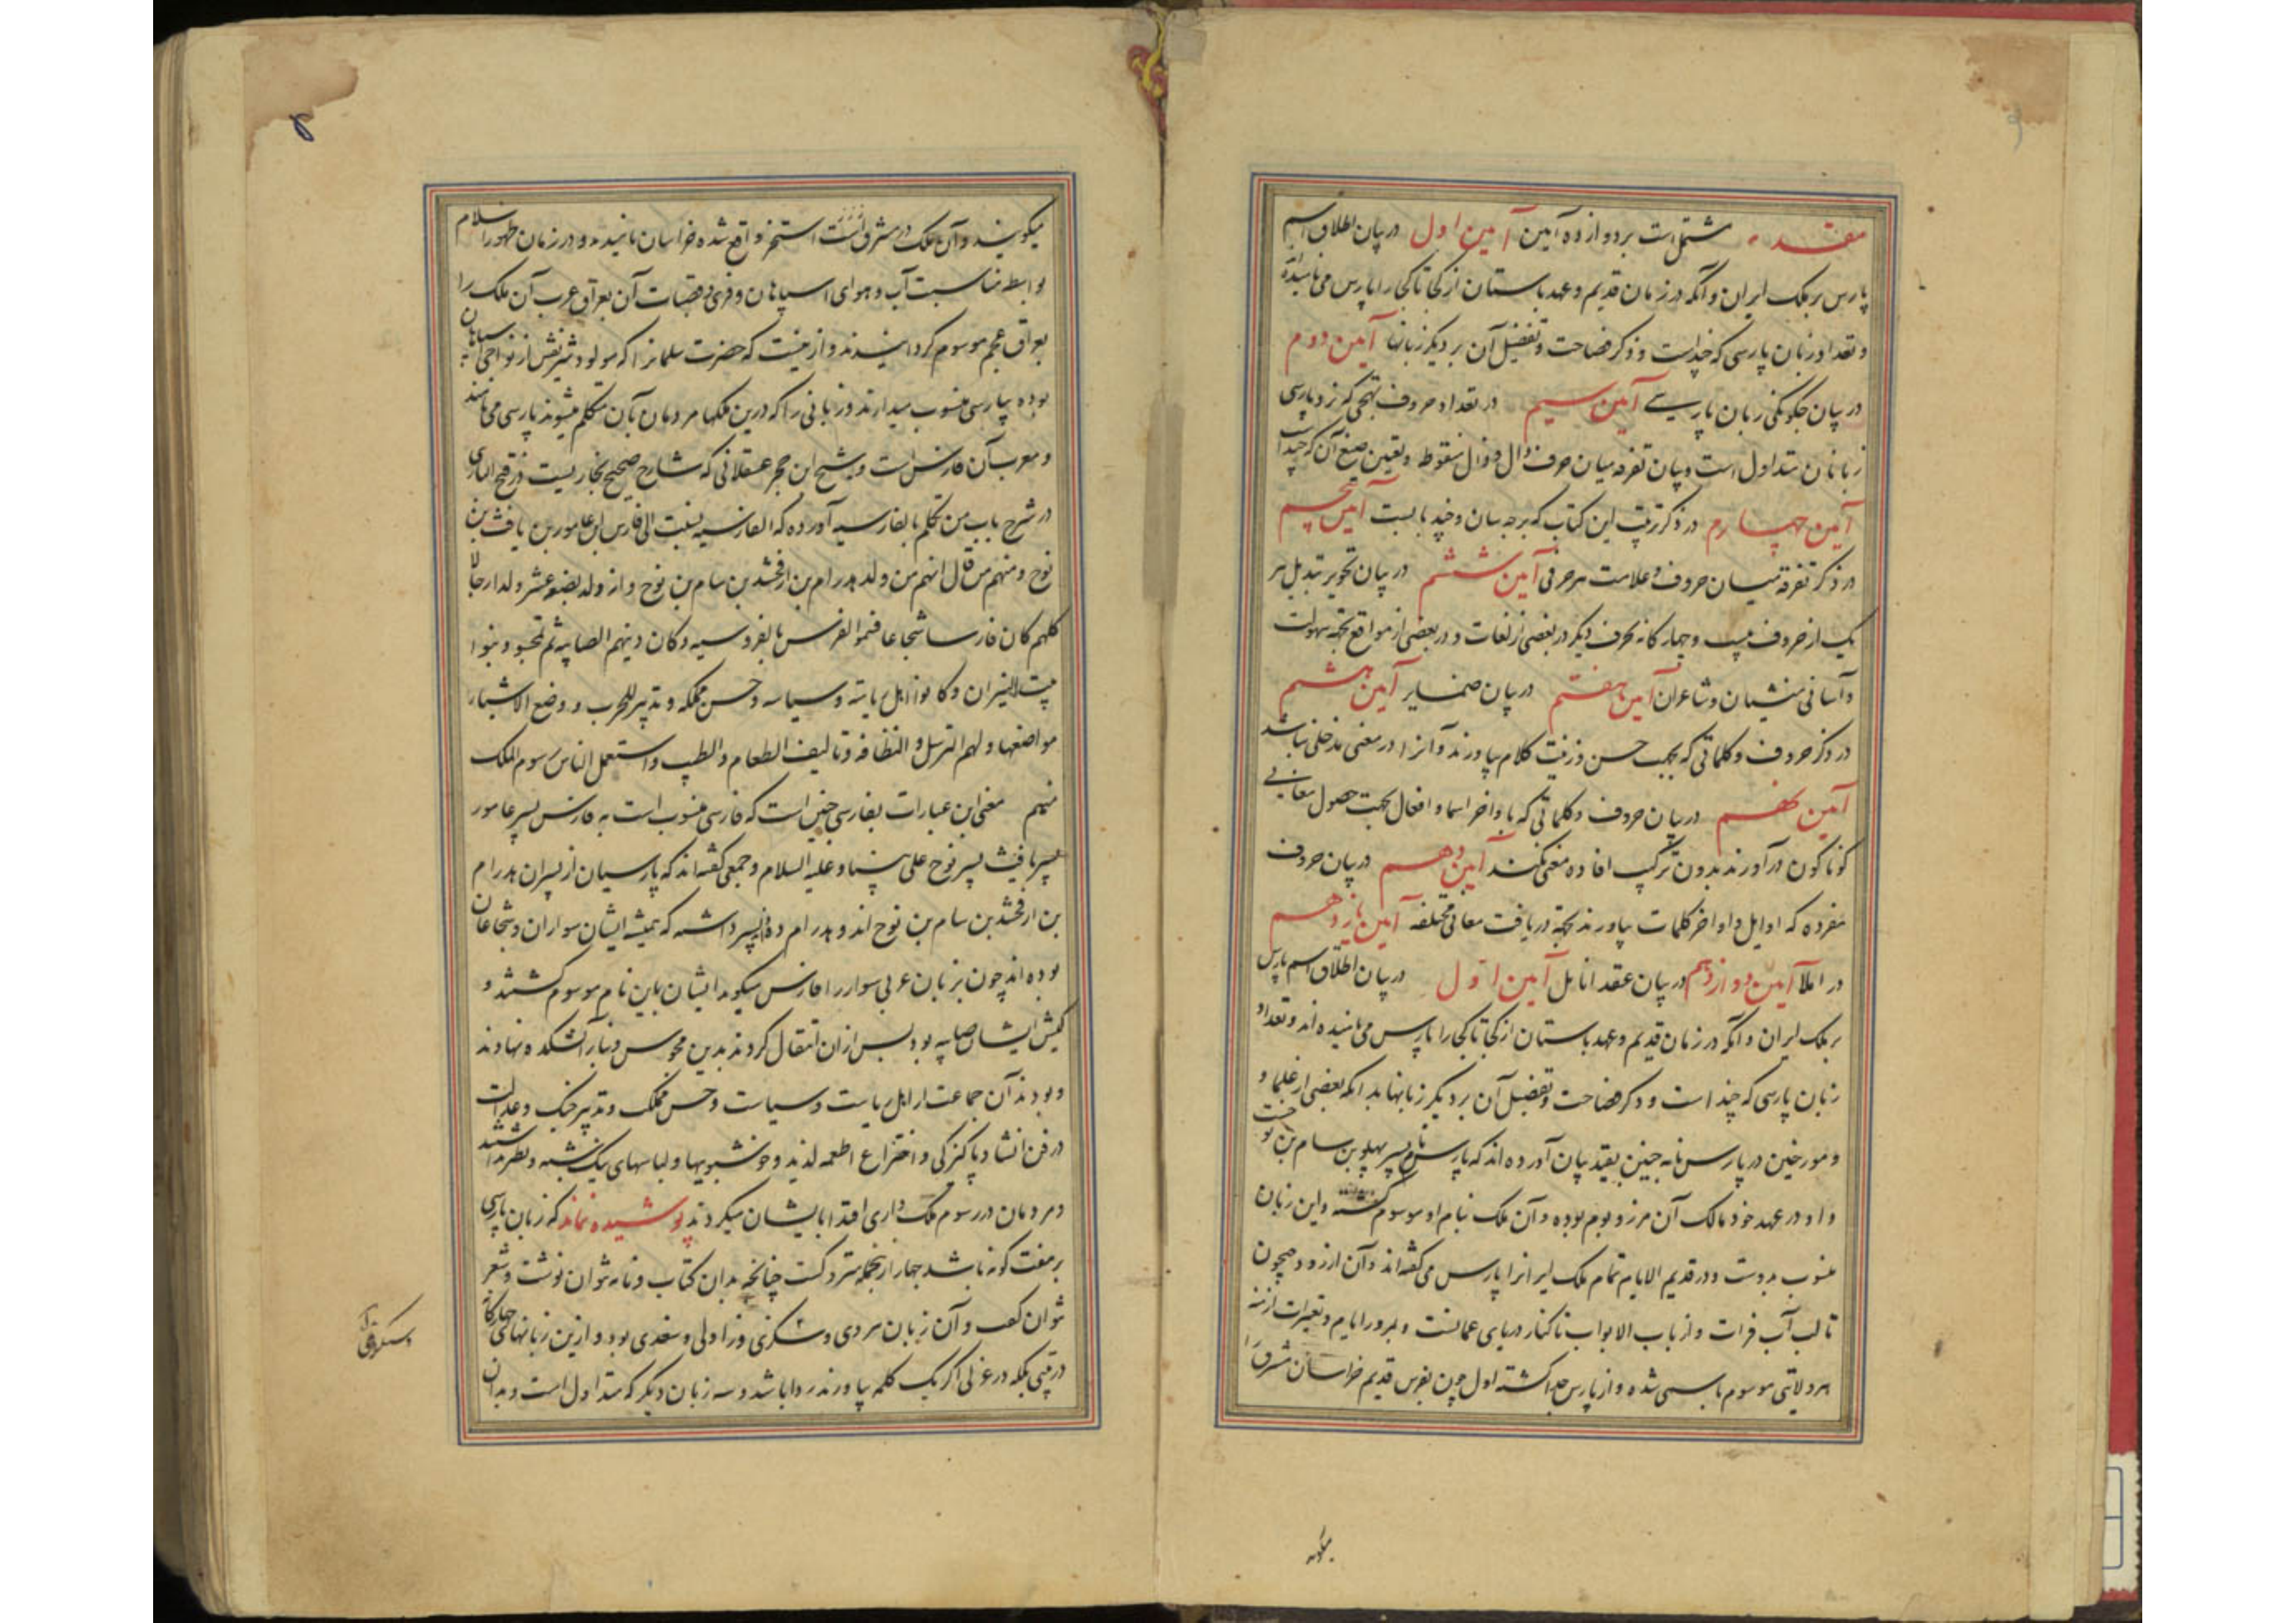 مقدمه مشتمل است بر دوازده آیین آیین اول در بیان اطلاق اسم
پارس بر ملک ایران و آنکه در زمان قدیم و عهد باستان از کجا تا کجا را پارس می نامیده اند
و تعداد زبان پارسی که چند است و ذکر فصاحت و تفضیل آن بر دیگر زبانها آیین دوم
در بیان چگونگی زبان پارسی آیین سیم در تعداد حروف تهجی که نزد پارسی
زبانان متداول است و بیان تفرقه میان حرف دال و ذال منقوط و تعیین صیغ آن که چند است
آیین چهارم در ذکر ترتیب این کتاب که بر چه سان و چند باب است آیین پنجم
در ذکر تفرقه میان حروف و علامت هر حرفی آیین ششم در بیان تجویز تبدیل هر
یک از حروف بیست و چهار گانه بحرف دیگر در بعضی از لغات و در بعضی از مواقع بجهة سهولت
و آسانی منشیان و شاعران آیین هفتم در بیان ضمایر آیین هشتم
در ذکر حروف و کلماتی که بجهت حسن و زینت کلام بیاورند و آنرا در معنی مدخلی نباشد
آیین نهم در بیان حروف و کلماتی که باواخر اسما و افعال بجهت حصول معانی
گوناگون در آورند بدون ترکیب افاده معنی نمیکنند آیین دهم در بیان حروف
مفرده که اوایل و اواخر کلمات بیاورند بجهة دریافت معانی مختلفه آیین یازدهم
در املا آیین دوازدهم در بیان عقد انامل آیین اول در بیان اطلاق اسم پارس
بر ملک ایران و آنکه در زمان قدیم و عهد باستان از کجا تا کجا را پارس می نامیده اند و تعداد
زبان پارسی که چند است و ذکر فصاحت و تفضیل آن بر دیگر زبانها بدانکه بعضی از علما و
و مورخین در پارس نامه چنین بقید بیان آورده اند که پارس نام پسر پهلو بن سام بن نوحست
و او در عهد خود مالک آن مرز و بوم بوده و آن ملک بنام او موسوم گشته و این زبان
منسوب بدوست و در قدیم الایام تمام ملک ایرانرا پارس می گفته اند و آن از رود جیحون
تا لب آب فرات و از باب الابواب تا کنار دریای عمانست و بمرور ایام و تغیرات ازمنه
هر ولایتی موسوم باسمی شده و از پارس جدا گشته اول چون بفرس قدیم خراسان مشرق را
میگویند و آن ملک در مشرق استخر واقع شده خراسان نامیدند و در زمان ظهور اسلام
بواسطه مناسبت آب و هوای اسپاهان و قری و قصبات آن بعراق عرب آن ملک را
بعراق عجم موسوم گردانیدند و ازینست که حضرت سلمانرا که مولود شریفش از نواحی اسپاهان
بوده بپارسی منسوب میدارند و زبانی را که درین ملکها مردمان بآن متکلم میشوند پارسی می نامند
و معرب آن فارس است و شیخ ابن حجر عسقلانی که شارح صحیح بخاریست در فتح الباری
در شرح باب من تکلم بالفارسیه آورده که الفارسیه نسبت الی فارس ابن عامور بن یافث بن
نوح و منهم من قال انهم من ولد بدرام بن ارفخشد بن سام بن نوح و انه ولد بضعة عشر ولدا رجالا
کلهم کان فارسا شجاعا فسموا الفرس بالفروسیه و کان دینهم الصابیه ثم تمجسوا و بنوا
بیت النیران و کانوا اهل ریاسة و سیاسه و حسن مملکه و تدبیر للحرب و وضع الاشیاء
مواضعها و لهم الترسل و النظافه و تالیف الطعام و الطیب و استعمل الناس رسوم الملک
منهم معنی این عبارات بفارسی چنین است که فارسی منسوب است به فارس پسر عامور
پسر یافث پسر نوح علی نبینا و علیه السلام و جمعی گفته اند که پارسیان از پسران بدرام
بن ارفخشد بن سام بن نوح اند و بدرام ده پسر داشته که همیشه ایشان سواران و شجاعان
بوده اند چون بزبان عربی سوار را فارس میگویند ایشان باین نام موسوم گشتند و
کیش ایشان صابیه بود پس از آن انتقال کردند بدین مجوس و بنای آتشکده نهادند
و بودند آن جماعت از اهل ریاست و سیاست و حسن مملکت و تدبیر جنگ و عدالت
در فن انشا و پاکیزگی و اختراع اطعمه لذیذ و خوشبویها و لباسهای
و مردمان در رسوم ملک داری اقتدا بایشان میکردند پوشیده نماند که زبان پارسی
بر هفت گونه باشد چهار از آنجمله متروکست چنانچه بدان کتاب و نامه نتوان نوشت و شعر
نتوان گفت و آن زبان هروی و سکزی و زاولی و سغدی بود و ازین زبانهای چهارگانه
در بیتی بلکه در غزلی اگر یک کلمه بیاورند روا باشد و سه زبان دیگر که متداول است و بدان
میگویند